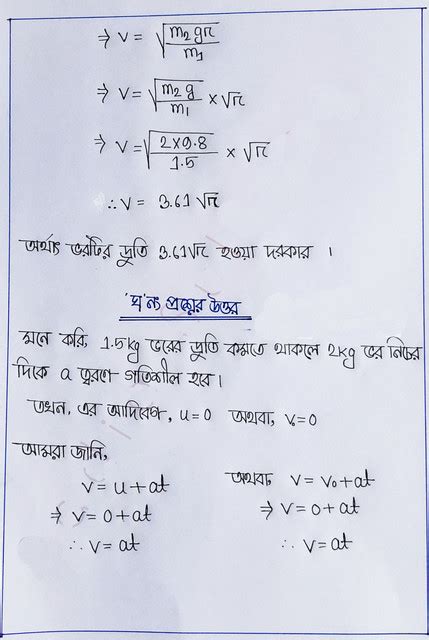 ⇒ v = √(m₂gr/m₁)
⇒ v = √(m₂g/m₁) × √r
⇒ v = √(2×9.8/1.5) × √r
∴ v = 3.61 √r
অর্থাৎ ভরটির দ্রুতি 3.61√r হওয়া দরকার ।
'ঘ' নং প্রশ্নের উত্তর
মনে করি, 1.5kg ভরের দ্রুতি কমতে থাকলে 2kg ভর নিচের
দিকে a ত্বরণে গতিশীল হবে ।
তখন, এর আদিবেগ, u = 0 অথবা, v₀ = 0
আমরা জানি,
v = u + at অথবা, v = v₀ + at
⇒ v = 0 + at ⇒ v = 0 + at
∴ v = at ∴ v = at